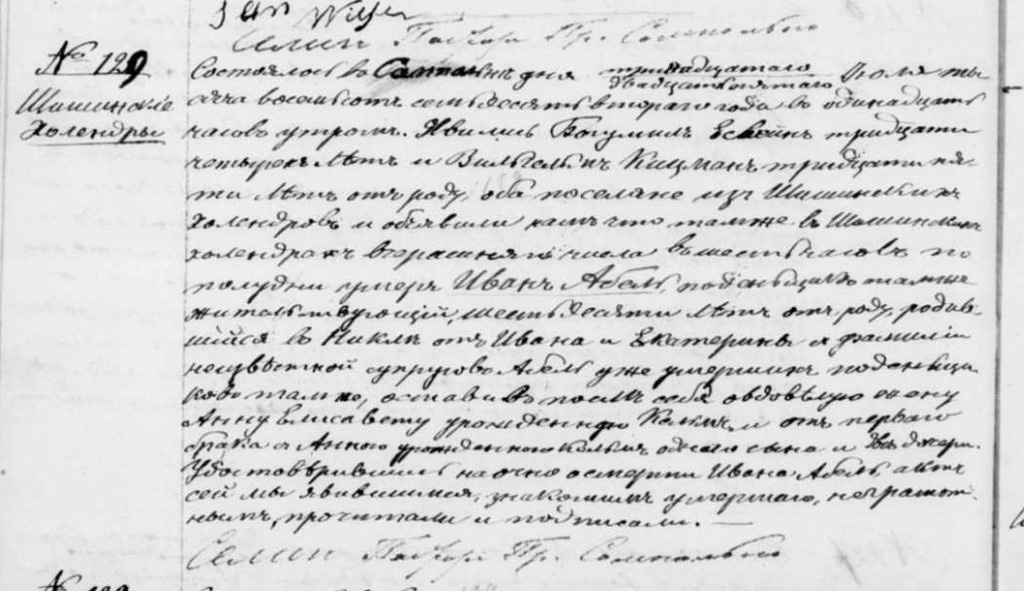 Jan
№ 129
Шишинскіе
Холендры
Состоялось во дня тринадцатаго двадцатьпятаго Іюля ты
сяча восемьсотъ семьдесятъ втораго года въ одинадцать
часовъ утромъ. Явились Богумилъ тридцати
четырехъ лѣтъ и Вильгельмъ Кицманъ тридцати пя-
ти лѣтъ отъ роду, оба поселяне изъ Шишинскихъ
Холендровъ и объявили намъ что тамже въ Шишинскихъ
холендрахъ вчерашняго числа въ шесть часовъ по
полудни умеръ Иванъ Абель, поденьщикъ тамже
жительствующій, шестьдесяти лѣтъ отъ роду, родив-
шійся въ отъ Ивана и Екатерины и фамиліи
неизвѣстной супруговъ Абель уже умершихъ поденьщи
ковъ тамже, оставивъ послѣ себя овдовѣлую жену
Анну Елисавету урожденную и отъ перваго
брака съ Анною урожденною одного сына и двѣ дочери.
Удостовѣрившись на очно о смерти Ивана Абель, актъ
сей мы явившимся, знакомымъ умершаго, неграмот-
нымъ, прочитали и подписали. —